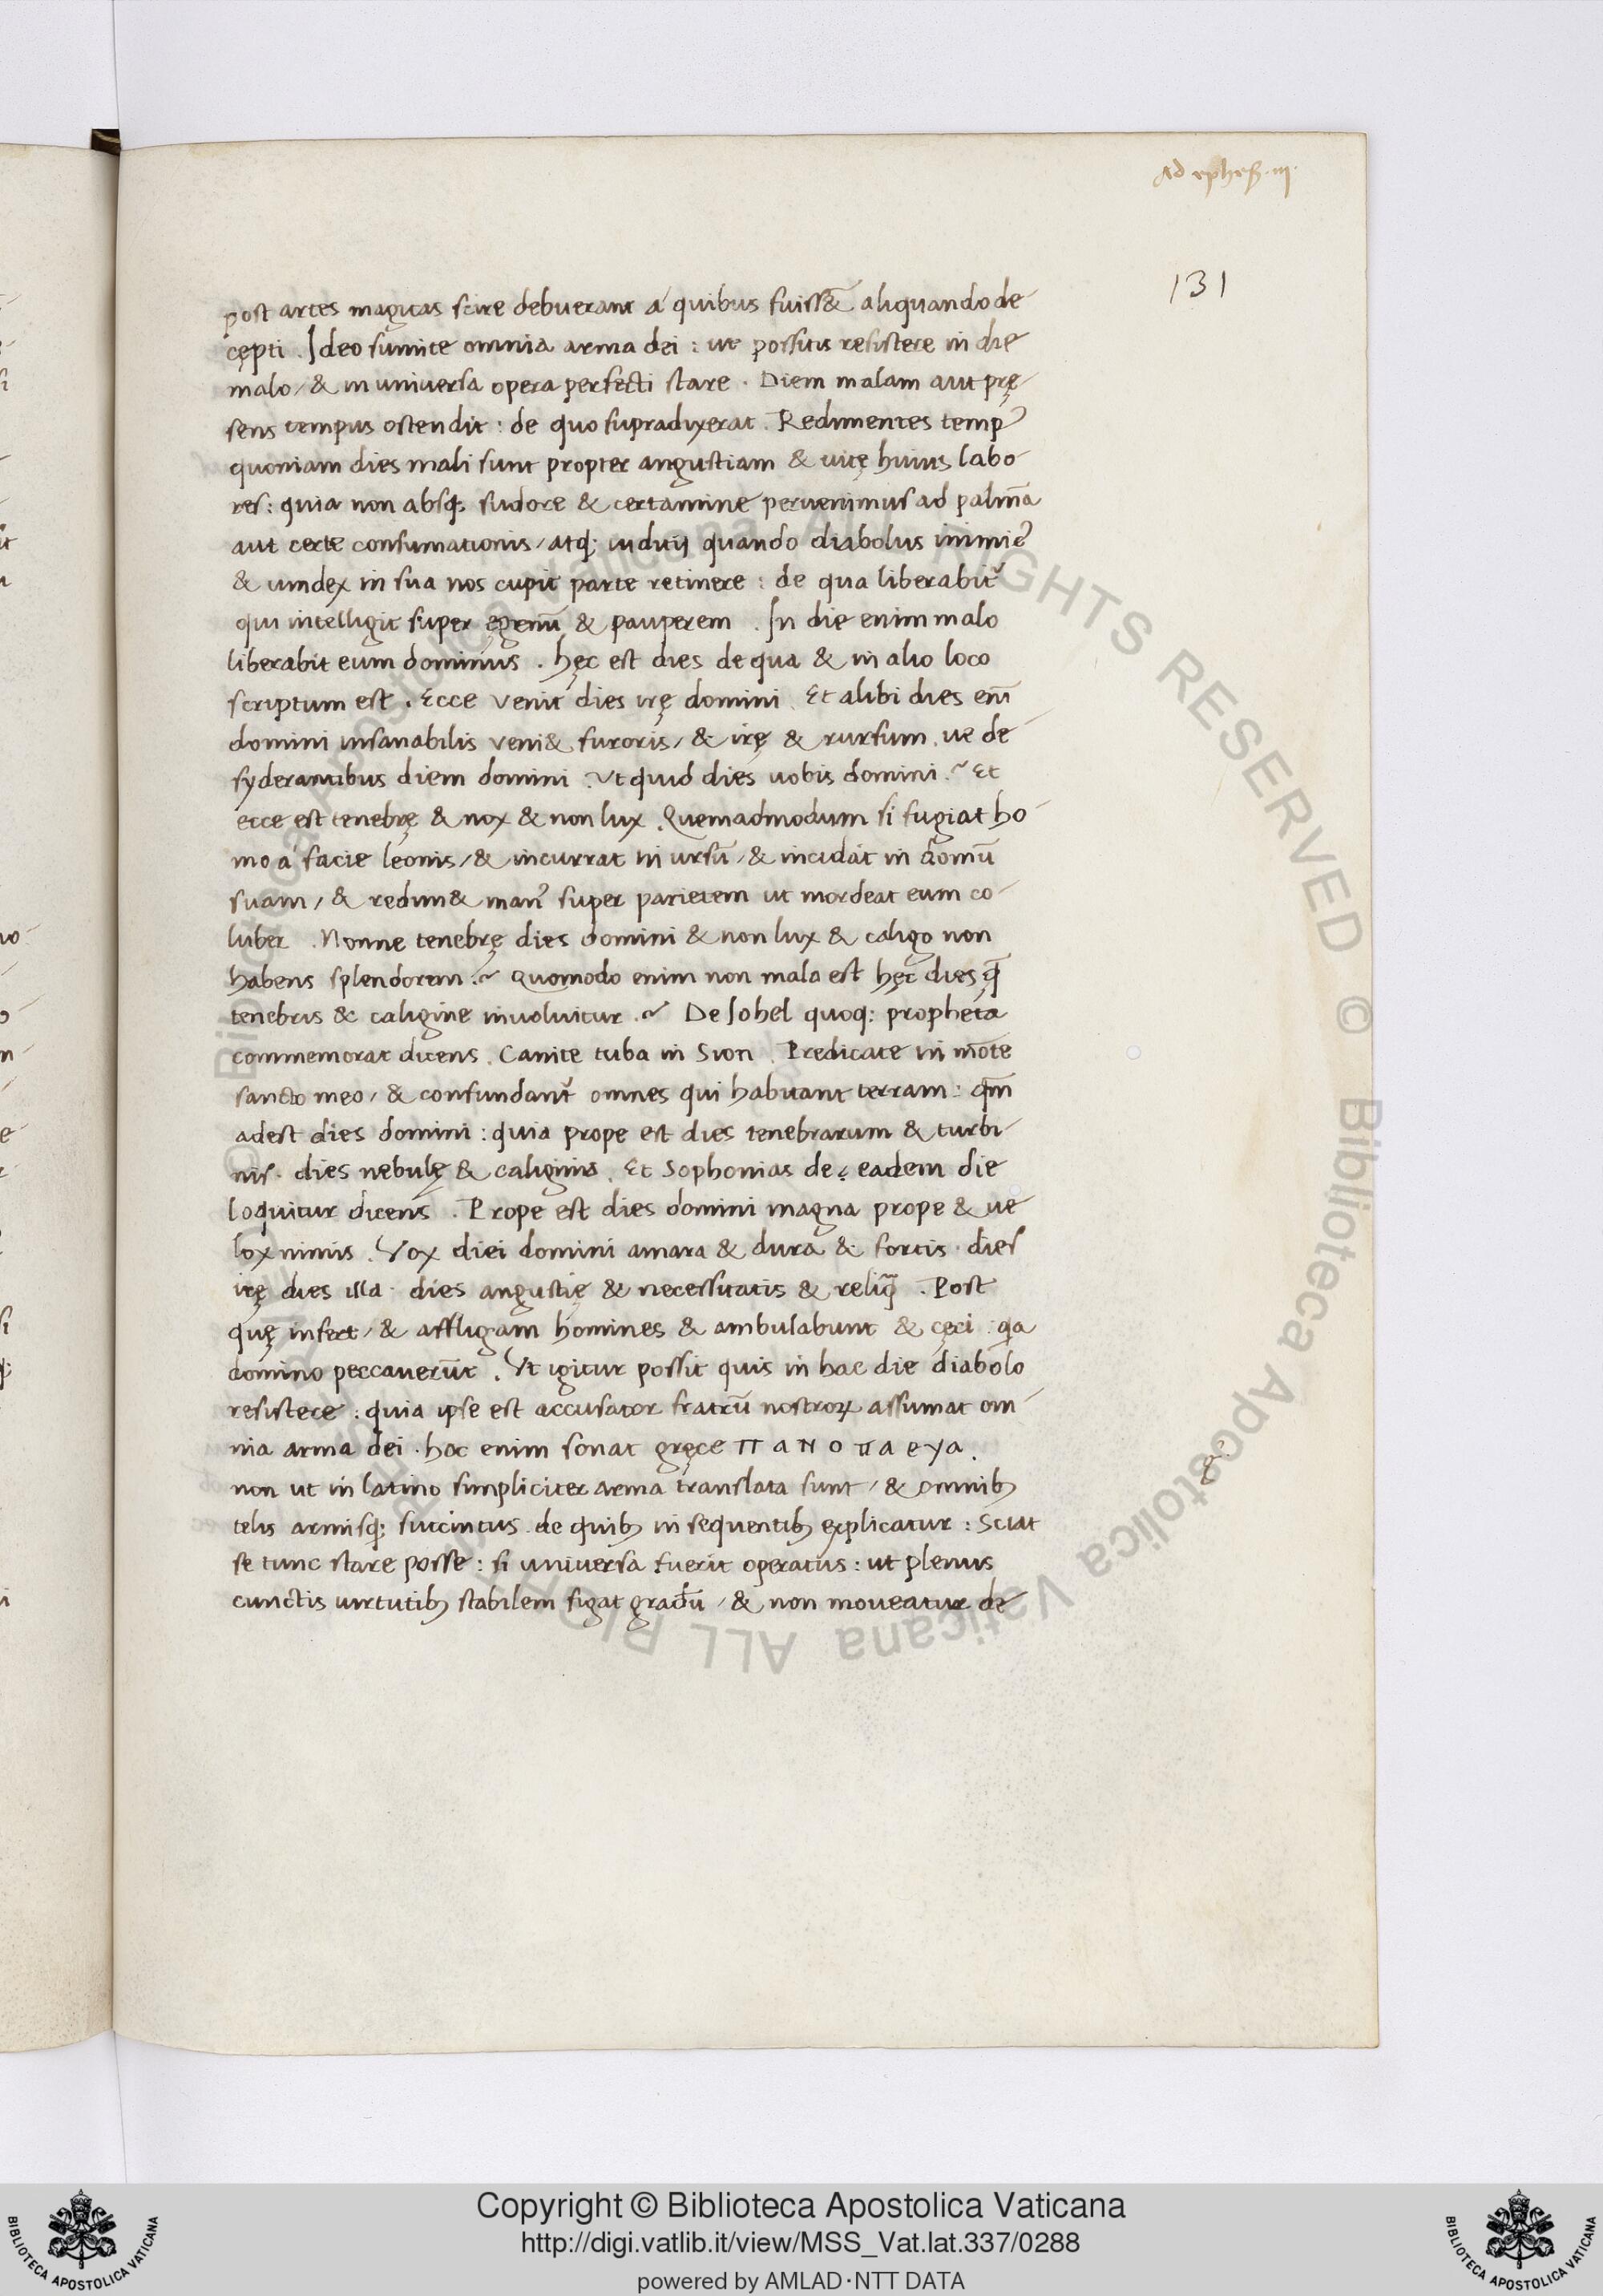 Ad ephes. iij.
131
post artes magicas scire debuerant a quibus fuiss&̄ aliquando de-
cępti . Ideo sumite omnia arma dei : ut possitis resistere in die
malo / & in universa opera perfecti stare . Diem malam aut prę-
sens tempus ostendit : de quo supradixerat . Redimentes temp᾿
quoniam dies mali sunt propter angustiam & uitę huius labo-
res : quia non absq; sudore & certamine pervenimus ad palmā
aut certe consumationis / atq; iuditij quando diabolus inimic᾿
& uindex in sua nos cupit parte retinere : de qua liberabit᾿
qui intelligit super egenū & pauperem . In die enim malo
liberabit eum dominus . hęc est dies de qua & in alio loco
scriptum est . Ecce venit dies irę domini . Et alibi dies eni̅
domini insanabilis veni& furoris / & irę & rursum . ue de-
syderantibus diem domini . Ut quid dies uobis domini .~ Et
ecce est tenebrę & nox & non lux . Quemadmodum si fugiat ho-
mo a facie leonis / & incurrat in ursū / & incidat in domū
suam / & redim& man᾿ super parietem ut mordeat eum co-
luber . Nonne tenebrę dies domini & non lux & caligo non
habens splendorem .~ Quomodo enim non mala est hęc dies q̄
tenebris & caligine involuitur .~ De Iohel quoq: propheta
commemorat dicens . Canite tuba in Sion . Predicate in mōte
sancto meo / & confundant᾿ omnes qui habitant terram : qm̄
adest dies domini : quia prope est dies tenebrarum & turbi-
nis . dies nebulę & caliginis . Et Sophonias de eadem die
loquitur dicens . Prope est dies domini magna prope & ue-
lox nimis . Vox diei domini amara & dura & fortis . dies
irę dies illa . dies angustię & necessitatis & reliq̄ . Post
quę infert / & affligam homines & ambulabunt & cęci : qa
domino peccauerūt . Ut igitur possit quis in hac die diabolo
resistere : quia ipse est accusator fratrū nostroꝝ assumat om-
nia arma dei . hoc enim sonat gręce π a N o π a e y a .
non ut in latino simpliciter arma translata sunt / & omnibꝫ
telis armisq; succintus . de quibꝫ in sequentibꝫ explicatur : Sciat
se tunc stare posse : si universa fuerit operatus : ut plenus
cunctis uirtutibꝫ stabilem figat gradū / & non moveatur de
© Biblioteca Apostolica Vaticana ALL RIGHTS RESERVED © Biblioteca Apostolica Vaticana ALL RIGHTS RESERVED
Copyright © Biblioteca Apostolica Vaticana
http://digi.vatlib.it/view/MSS_Vat.lat.337/0288
powered by AMLAD·NTT DATA
BIBLIOTECA APOSTOLICA VATICANA
BIBLIOTECA APOSTOLICA VATICANA